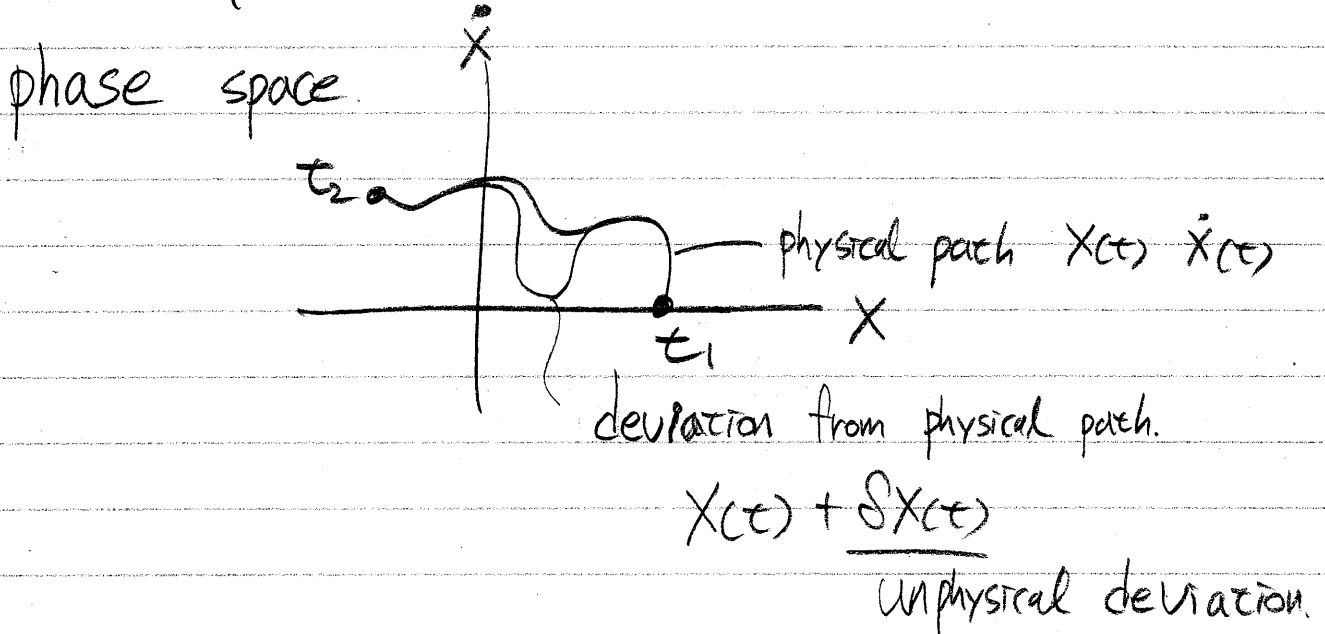 Ẋ
phase space.
t₂
physical path X(t) Ẋ(t)
X
t₁
deviation from physical path.
X(t) + δX(t)
unphysical deviation.